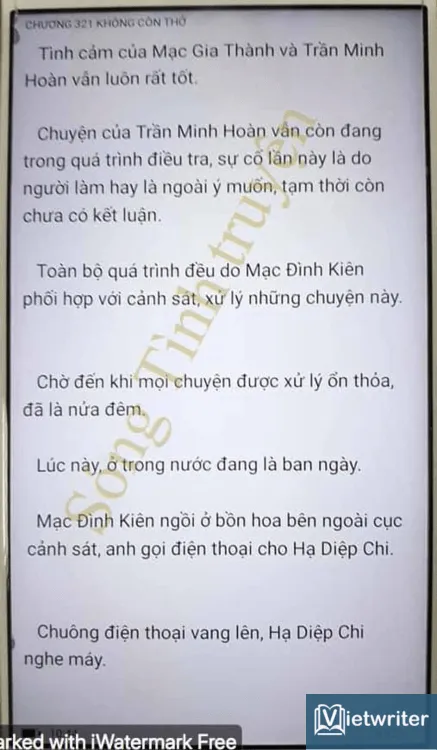 CHƯƠNG 321 KHÔNG CÒN THỞ
Tình cảm của Mạc Gia Thành và Trần Minh
Hoàn vẫn luôn rất tốt.
Chuyện của Trần Minh Hoàn vẫn còn đang
trong quá trình điều tra, sự cố lần này là do
người làm hay là ngoài ý muốn, tạm thời còn
chưa có kết luận.
Toàn bộ quá trình đều do Mạc Đình Kiên
phối hợp với cảnh sát, xử lý những chuyện này.
Chờ đến khi mọi chuyện được xử lý ổn thỏa,
đã là nửa đêm.
Lúc này, ở trong nước đang là ban ngày.
Mạc Đình Kiên ngồi ở bồn hoa bên ngoài cục
cảnh sát, anh gọi điện thoại cho Hạ Diệp Chi.
Chuông điện thoại vang lên, Hạ Diệp Chi
nghe máy.
Sóng Tình truyện
Vietwriter
arked with iWatermark Free